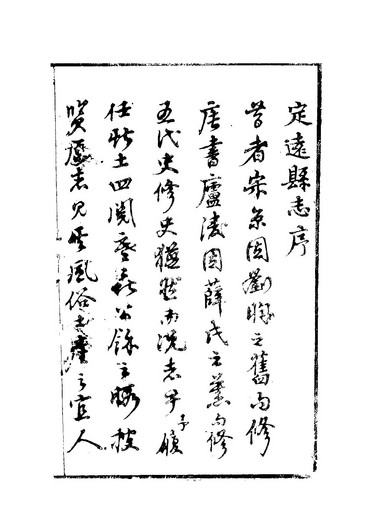 定遠縣志序
昔者宋京因劉昫之舊而修
唐書廬陵因薛氏之舊而修
五代史修史猶然而況志乎予履
任斯土四閱寒暑公餘之暇披
覽舊志見其風俗土產之宜人